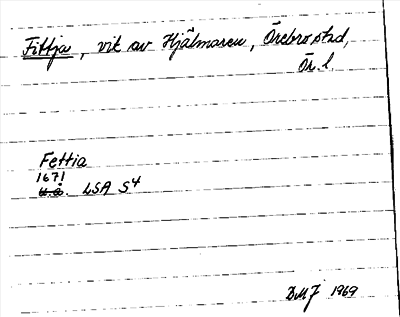 Fittja, vik av Hjälmaren, Örebro std,
Ör. l.
Fettia
1671
u.å. LSA S4
DMJ 1969